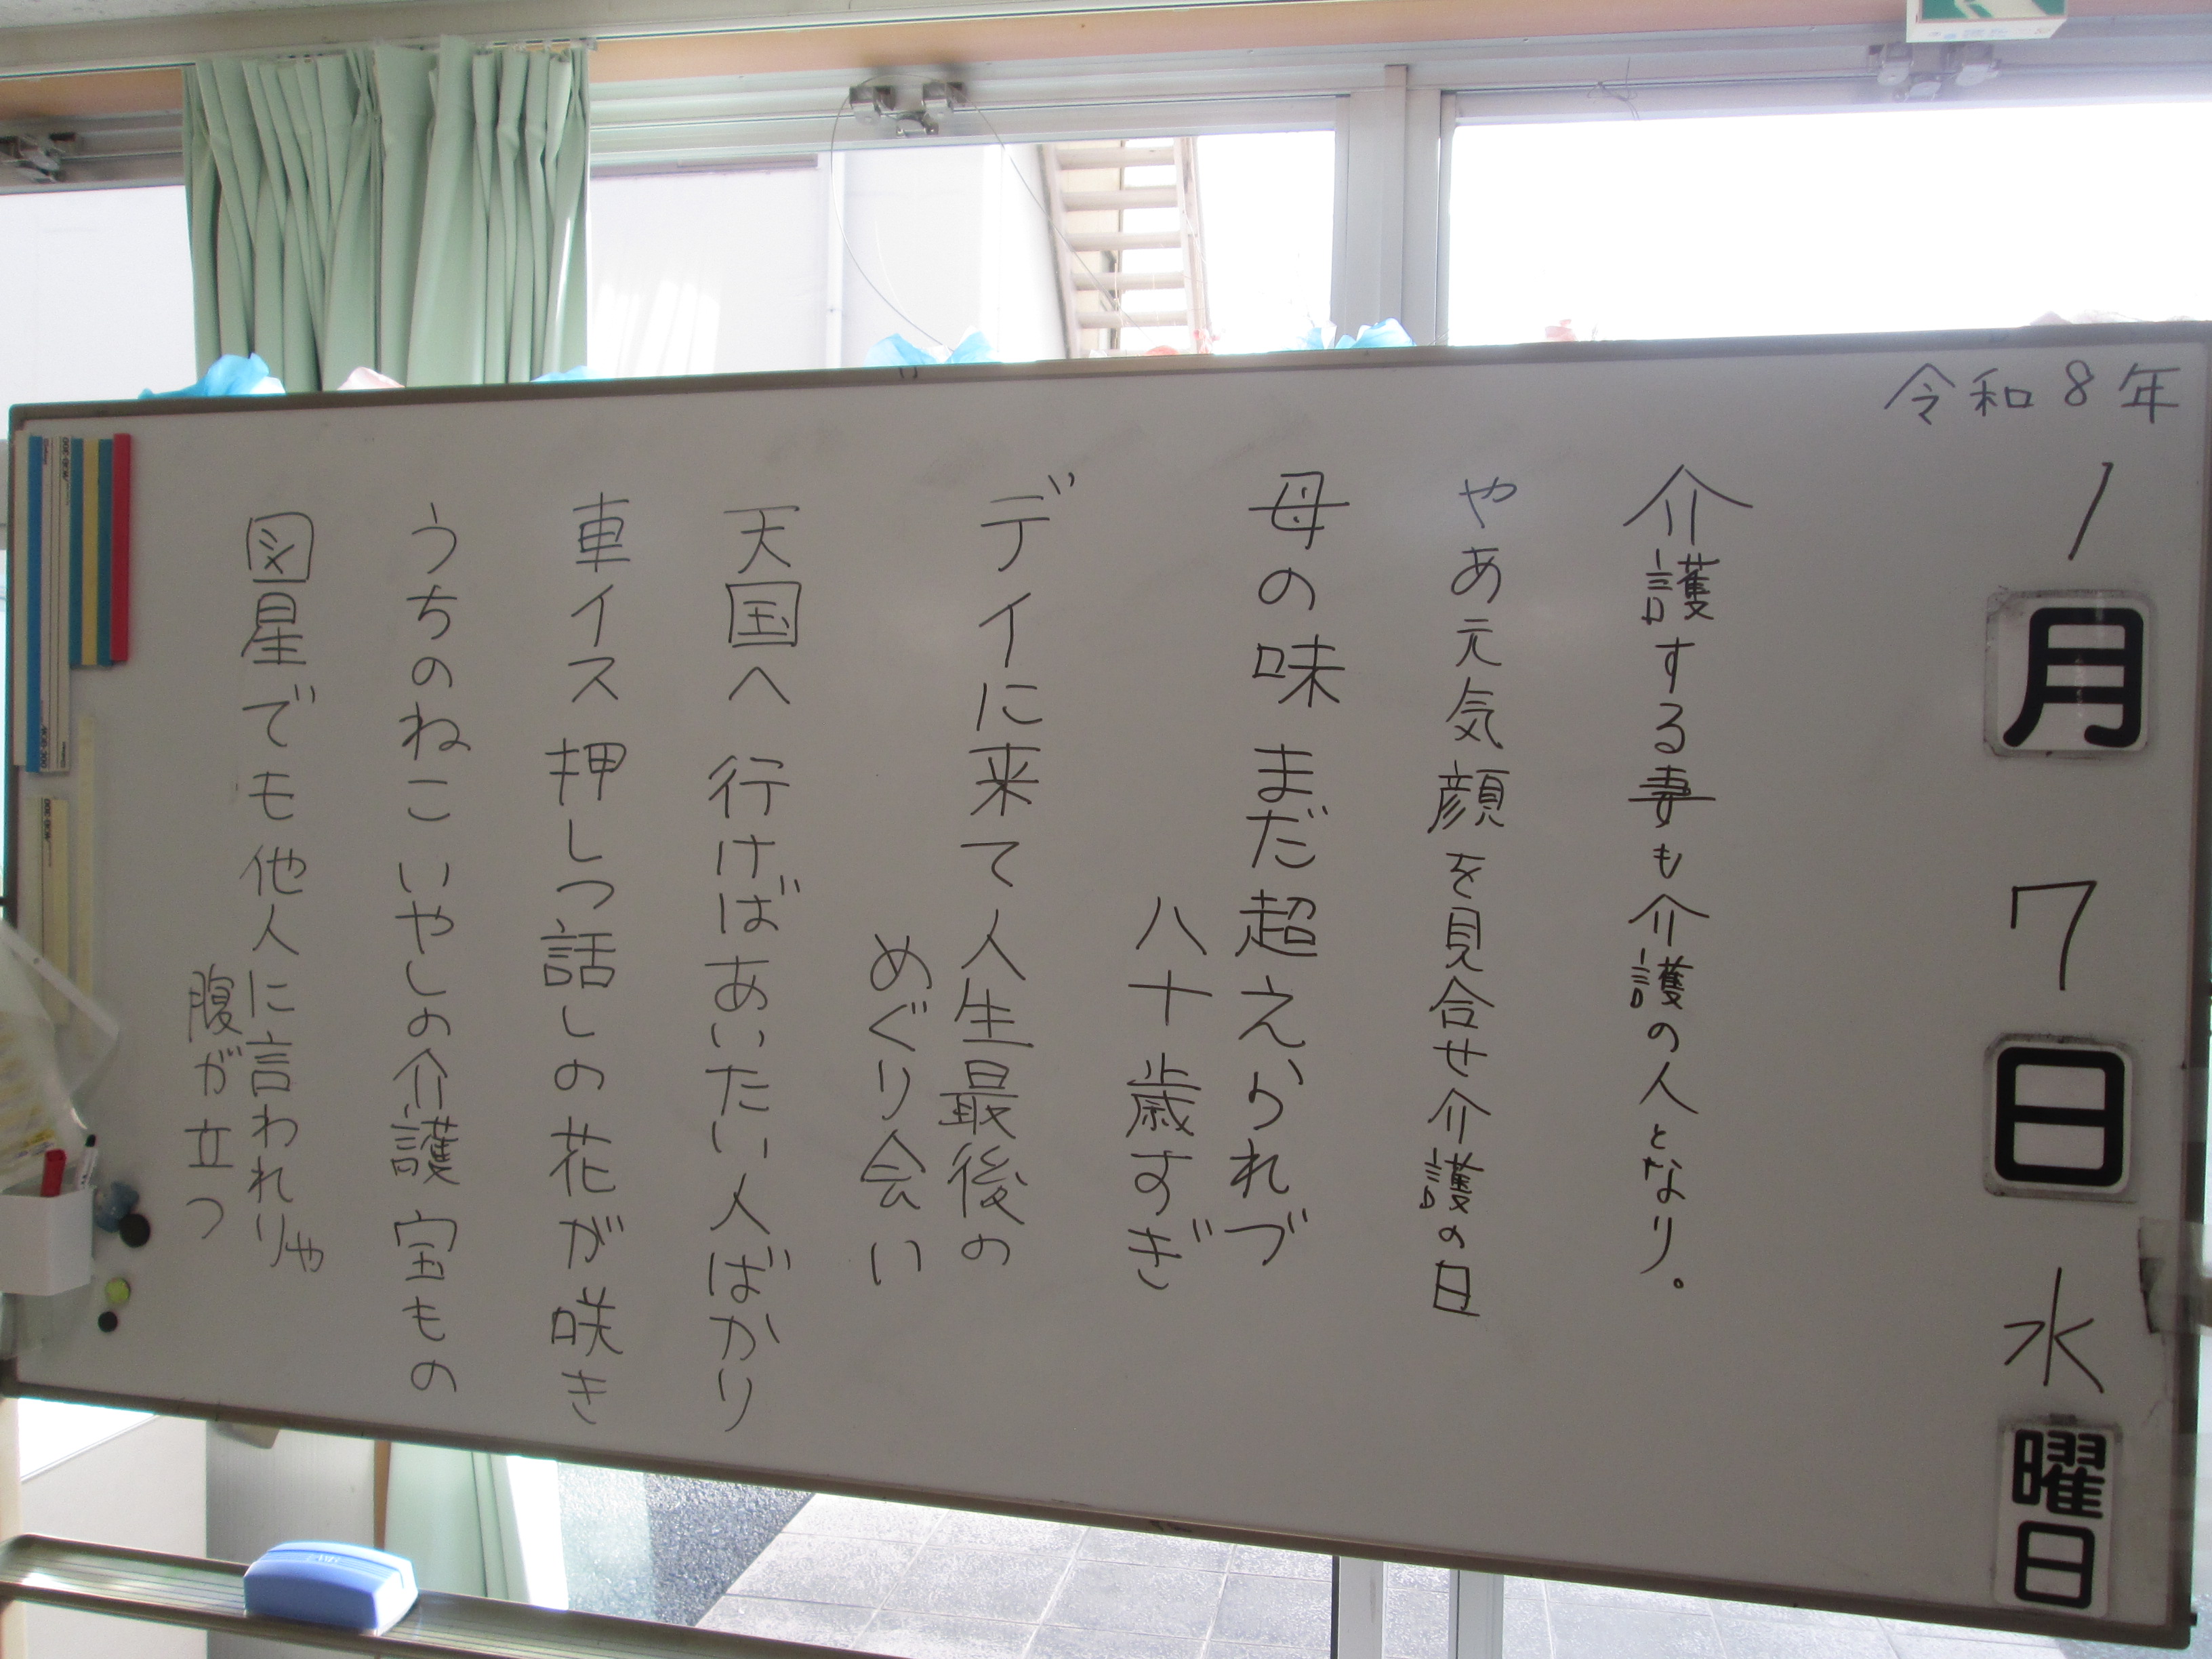 令和8年
1月7日水曜日
介護する妻も介護の人となり。
やあ元気顔を見合せ介護の日
母の味まだ超えられづ
八十歳すぎ
デイに来て人生最後の
めぐり会い
天国へ行けばあいたい人ばかり
車イス押しつ話しの花が咲き
うちのねこいやしの介護宝もの
図星でも他人に言われりゃ
腹が立つ